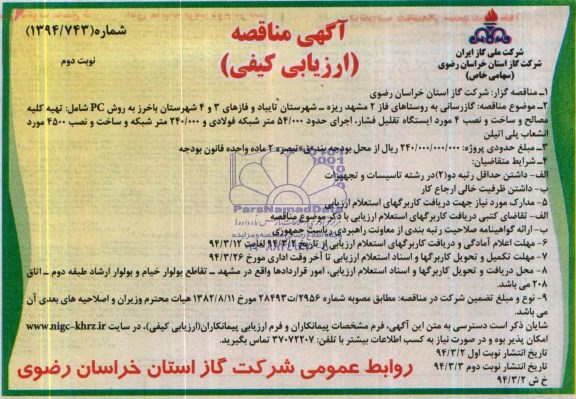 آگهی مناقصه
(ارزیابی کیفی)
شماره(۱۳۹۴/۷۴۳)
نوبت دوم
شرکت ملی گاز ایران
شرکت گاز استان خراسان رضوی
(سهامی خاص)
۱ـ مناقصه گزار: شرکت گاز استان خراسان رضوی
۲ـ موضوع مناقصه: گازرسانی به روستاهای فاز ۲ مشهد ریزه ـ شهرستان تایباد و فازهای ۳ و ۴ شهرستان باخرز به روش PC شامل: تهیه کلیه
مصالح و ساخت و نصب ۴ مورد ایستگاه تقلیل فشار، اجرای حدود ۵۴/۰۰۰ متر شبکه فولادی و ۲۴۰/۰۰۰ متر شبکه و ساخت و نصب ۴۵۰۰ مورد
انشعاب پلی اتیلن
۳ـ مبلغ حدودی پروژه: ۲۴۰/۰۰۰/۰۰۰/۰۰۰ ریال از محل بودجه بند«ق»تبصره ۲ ماده واحده قانون بودجه
۴ـ شرایط متقاضیان:
الف- داشتن حداقل رتبه دو(۲)در رشته تاسیسات و تجهیزات
ب- داشتن ظرفیت خالی ارجاع کار
۵ـ مدارک مورد نیاز جهت دریافت کاربرگهای استعلام ارزیابی
الف- تقاضای کتبی دریافت کاربرگهای استعلام ارزیابی با ذکر موضوع مناقصه
ب- ارائه گواهینامه صلاحیت رتبه بندی از معاونت راهبردی ریاست جمهوری
۶- مهلت اعلام آمادگی و دریافت کاربرگهای استعلام ارزیابی از تاریخ ۹۴/۳/۲ لغایت ۹۴/۳/۱۲
۷- مهلت تکمیل و تحویل کاربرگها و اسناد استعلام ارزیابی تا آخر وقت اداری مورخ ۹۴/۳/۲۶
۸- محل دریافت و تحویل کاربرگها و اسناد استعلام ارزیابی، امور قراردادها واقع در مشهد ـ تقاطع بولوار خیام و بولوار ارشاد طبقه دوم ـ اتاق
۲۰۸ می باشد.
۹- نوع و مبلغ تضمین شرکت در مناقصه: مطابق مصوبه شماره ۲۹۵۶/ت۲۸۴۹۳ مورخ ۱۳۸۲/۸/۱۱ هیات محترم وزیران و اصلاحیه های بعدی آن
می باشد.
شایان ذکر است دسترسی به متن این آگهی، فرم مشخصات پیمانکاران و فرم ارزیابی پیمانکاران(ارزیابی کیفی)، در سایت www.nigc-khrz.ir
امکان پذیر بوده و در صورت نیاز به کسب اطلاعات بیشتر با تلفن: ۳۷۰۷۲۲۰۷ تماس بگیرید.
تاریخ انتشار نوبت اول ۹۴/۳/۲
تاریخ انتشار نوبت دوم ۹۴/۳/۳
خ ش ۹۴/۳/۲
روابط عمومی شرکت گاز استان خراسان رضوی
ParsNamadData